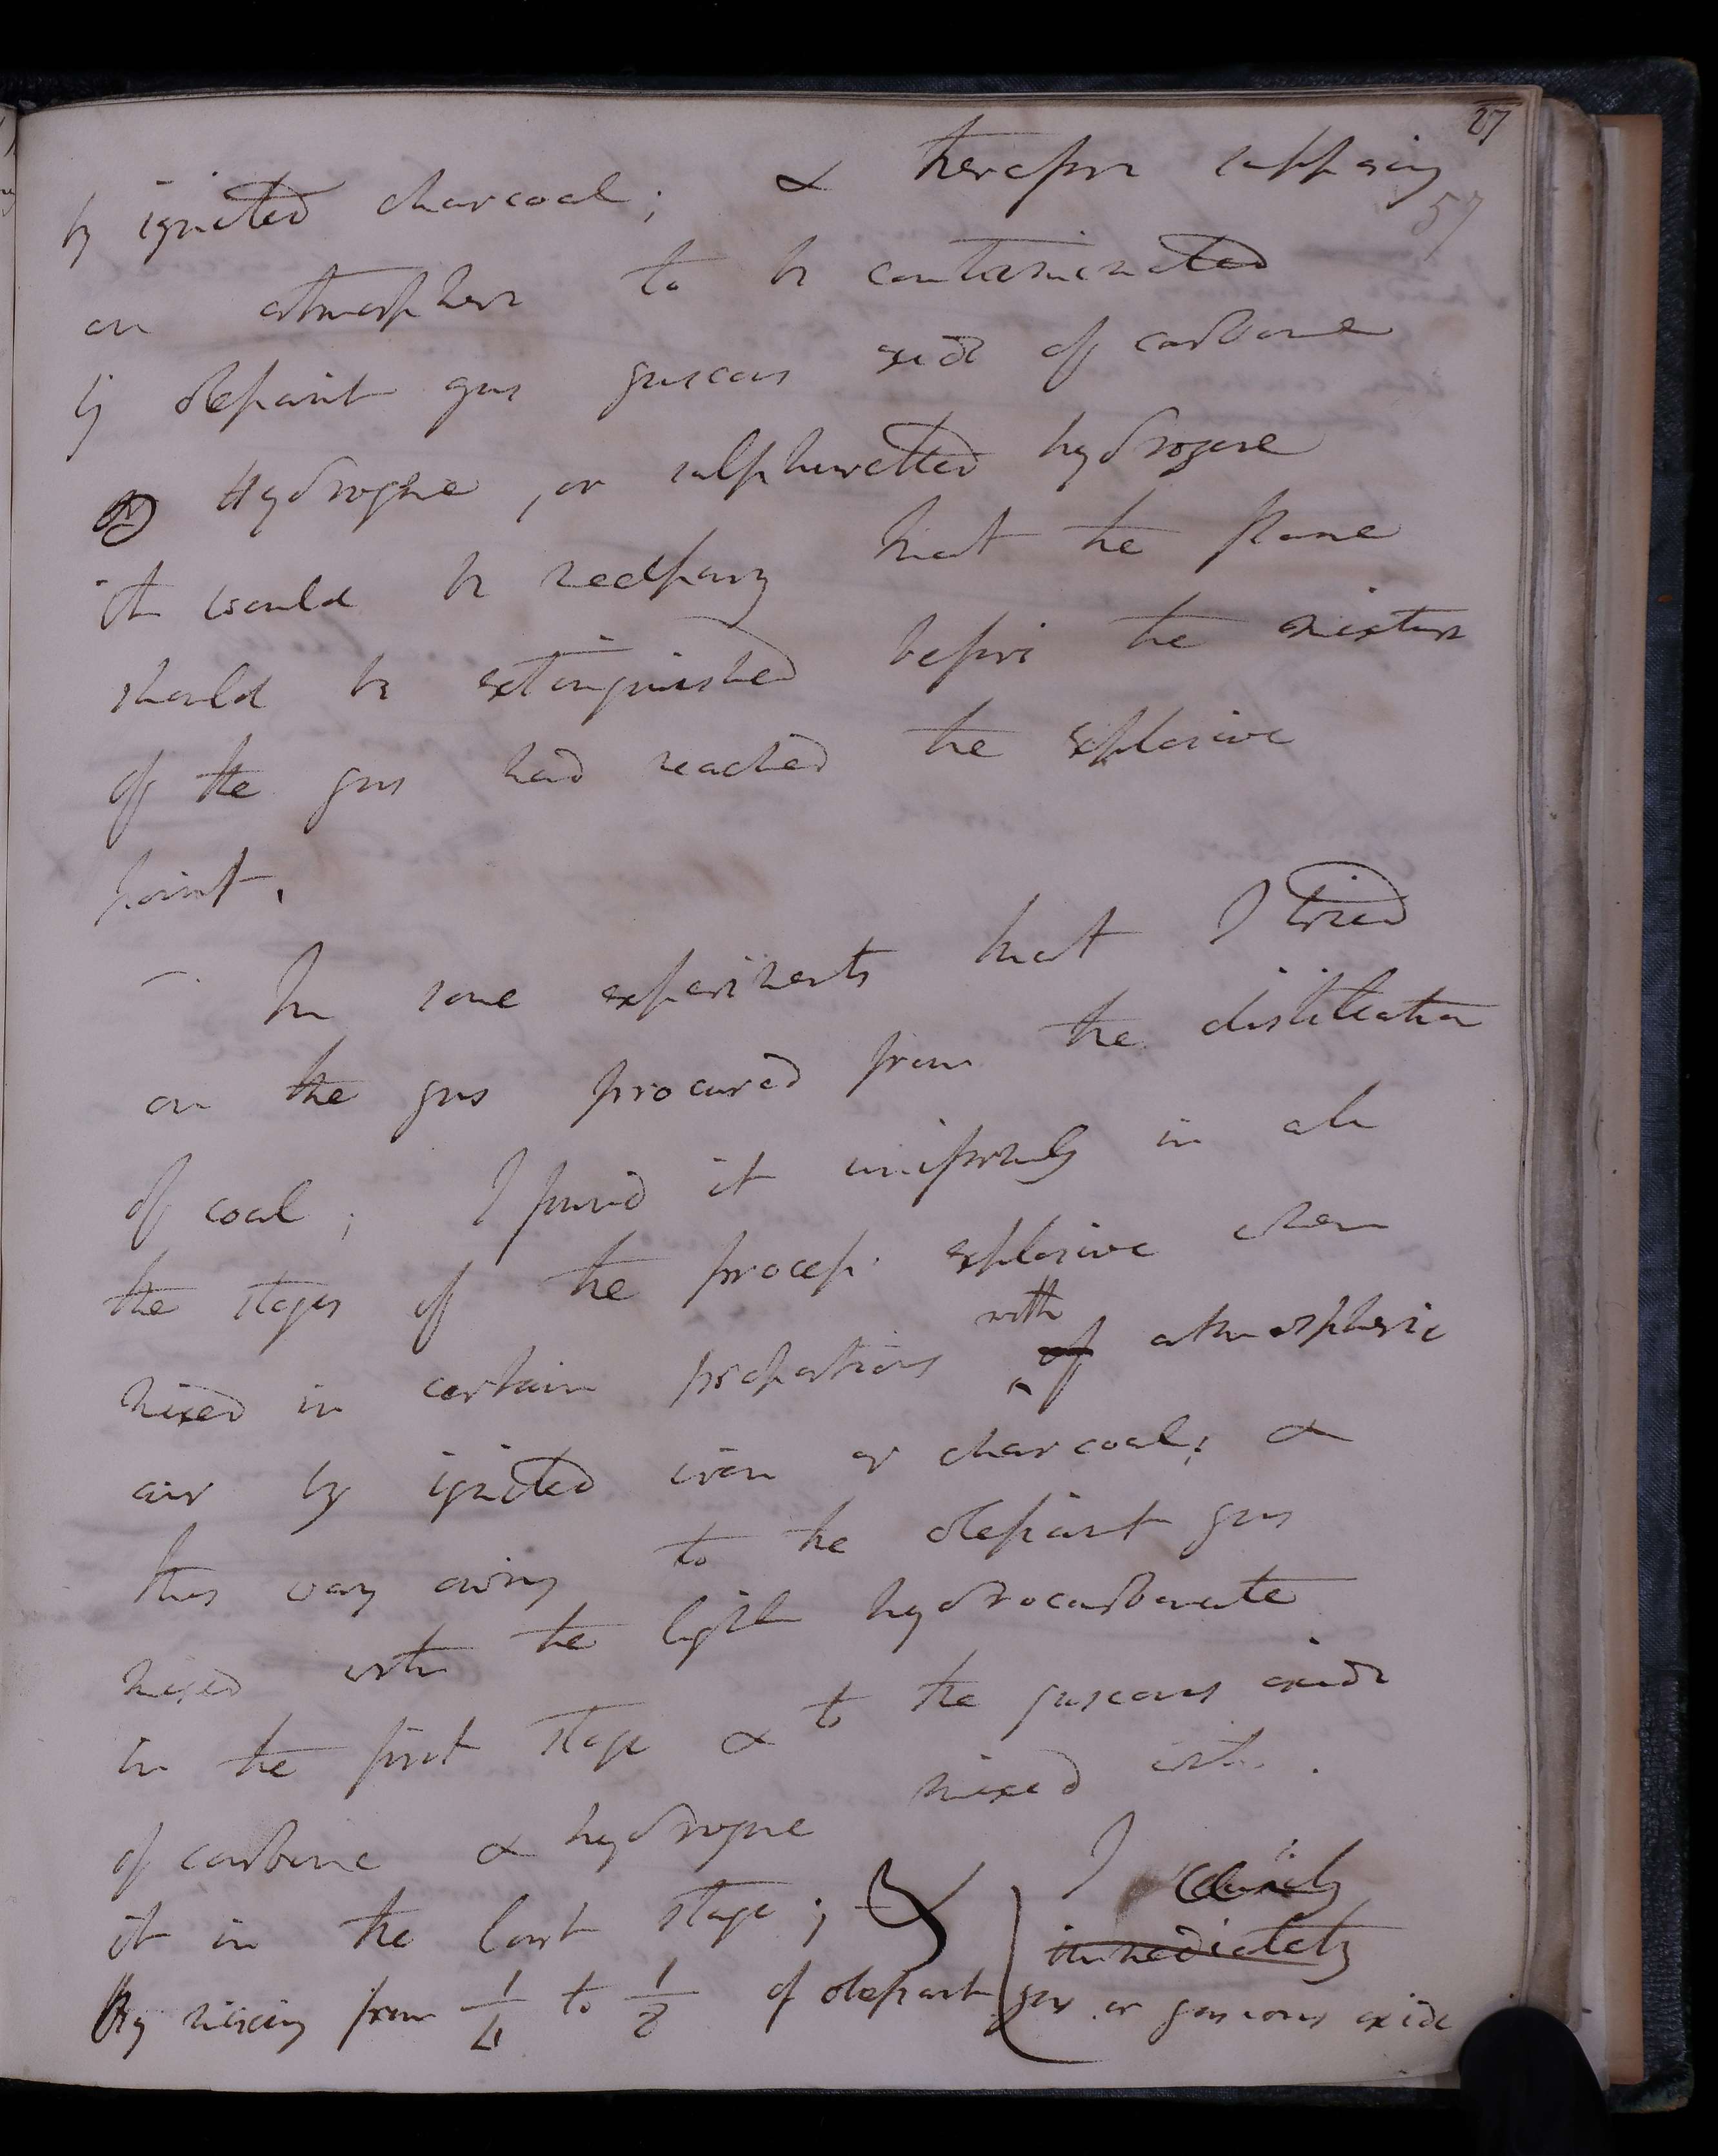 27
57
by ignited charcoal; & therefore supposing
an atmosphere to be contaminated
by olefiant gas gaseous oxide of carbone
or Hydrogene, or sulphuretted hydrogene
it would be necessary that the flame
should be extinguished before the mixture
of the gas had reached the explosive
point.
In some experiments that I tried
on the gas procured from the distillation
of coal; I found it uniformly in all
the stages of the process explosive when
with
mixed in certain proportions of atmospheric
air by ignited iron or charcoal; &
this was owing to the olefiant gas
mixed with the light hydrocarbonate
in the first stage & to the gaseous oxide
of carbone & hydrogene mixed with
it in the last stage; & I
immediately
By mixing from 1/4 to 1/8 of olefiant gas or gaseous oxide